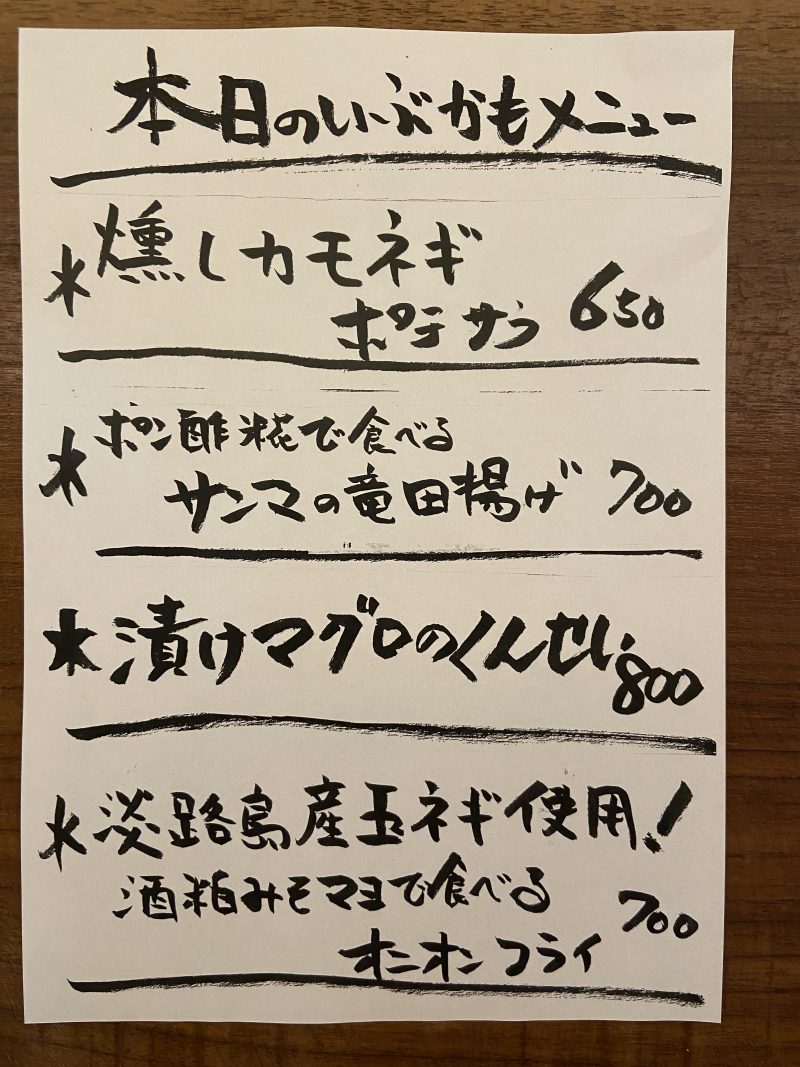 本日のいぶかもメニュー
*燻しカモネギ
ポテサラ 650
*ポン酢糀で食べる
サンマの竜田揚げ 700
*漬けマグロのくんせい
800
*淡路島産玉ネギ使用!
酒粕みそマヨで食べる
700
オニオンフライ